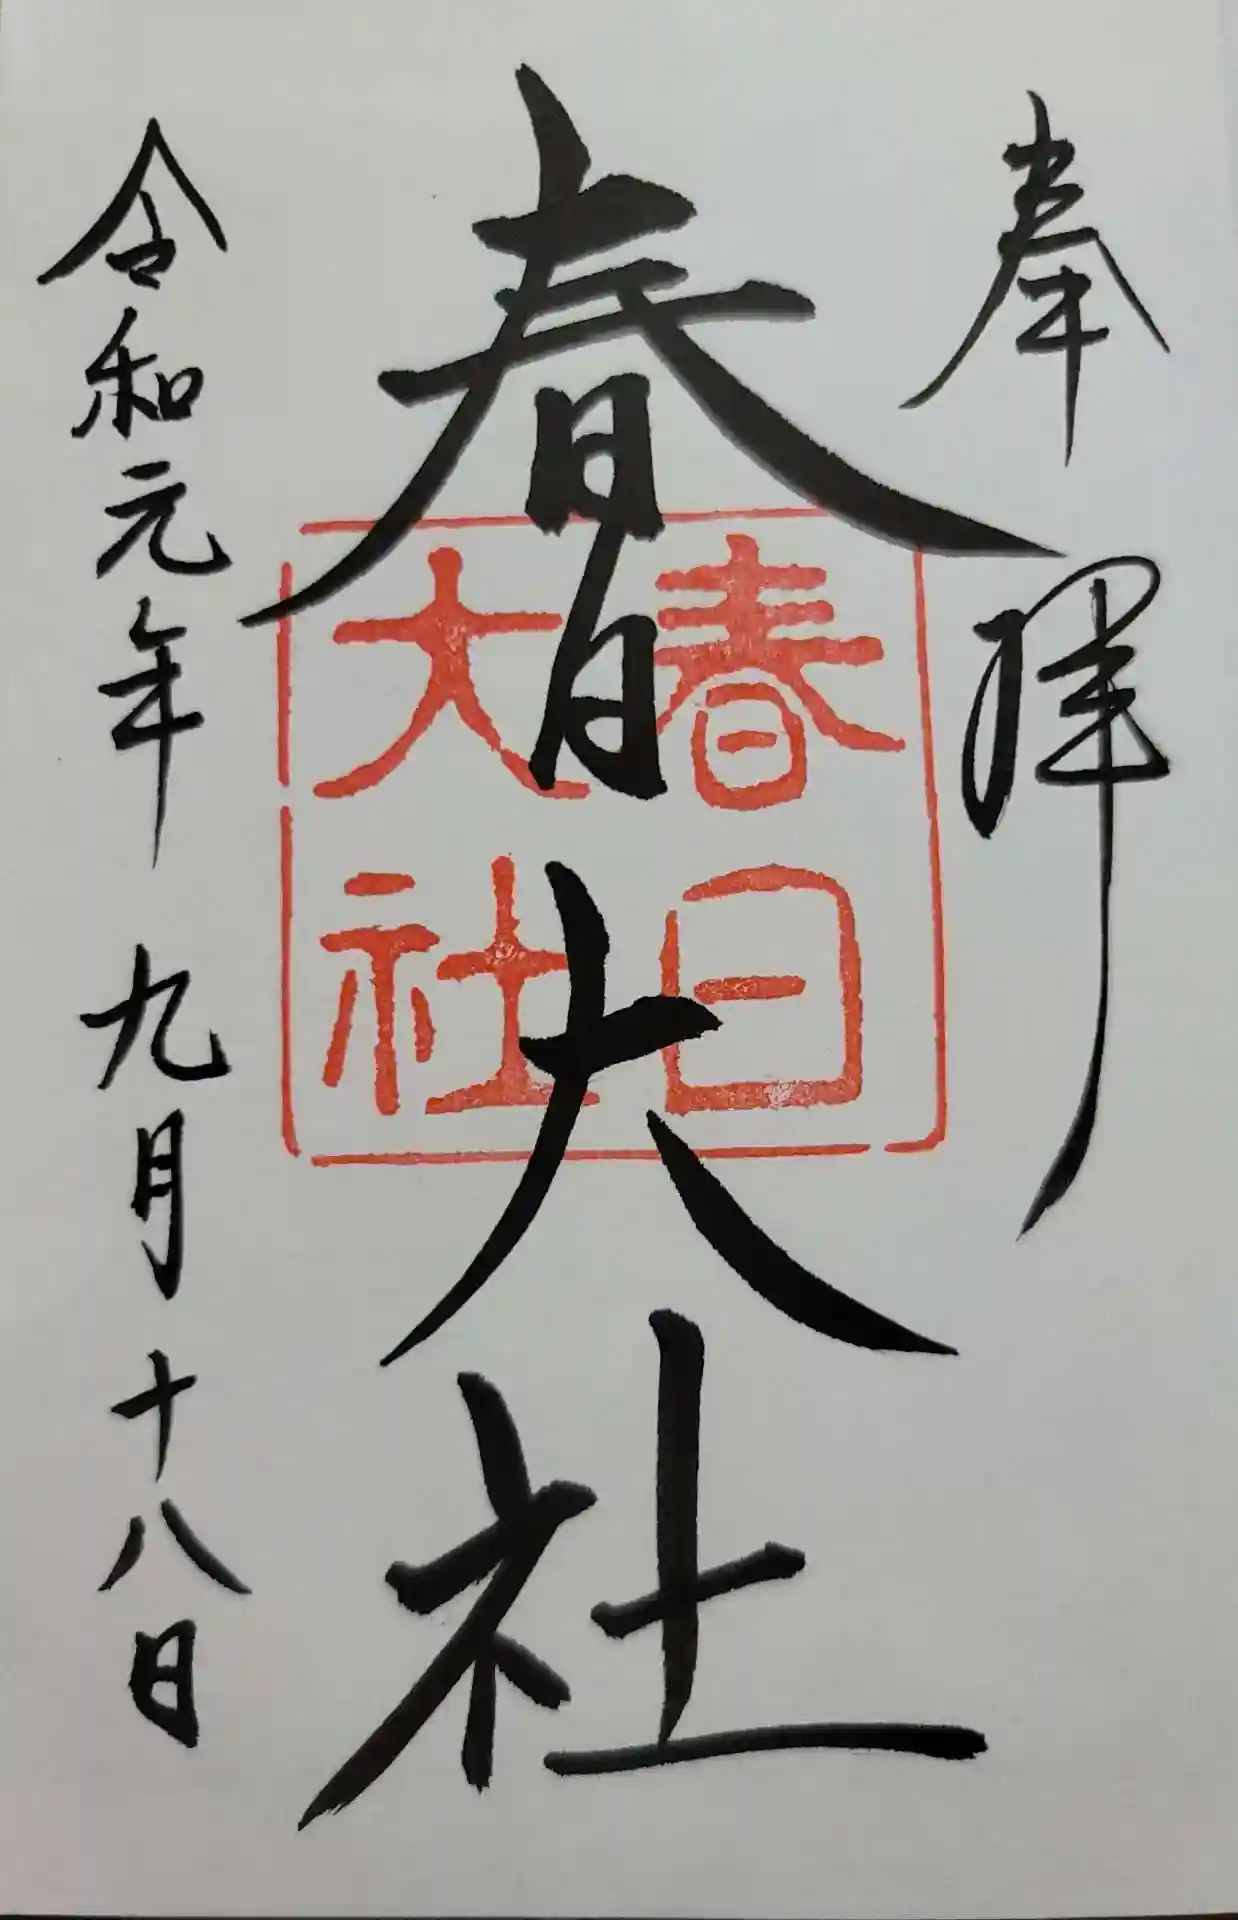 奉拝
春日大社
春日
大社
令和元年 九月十八日